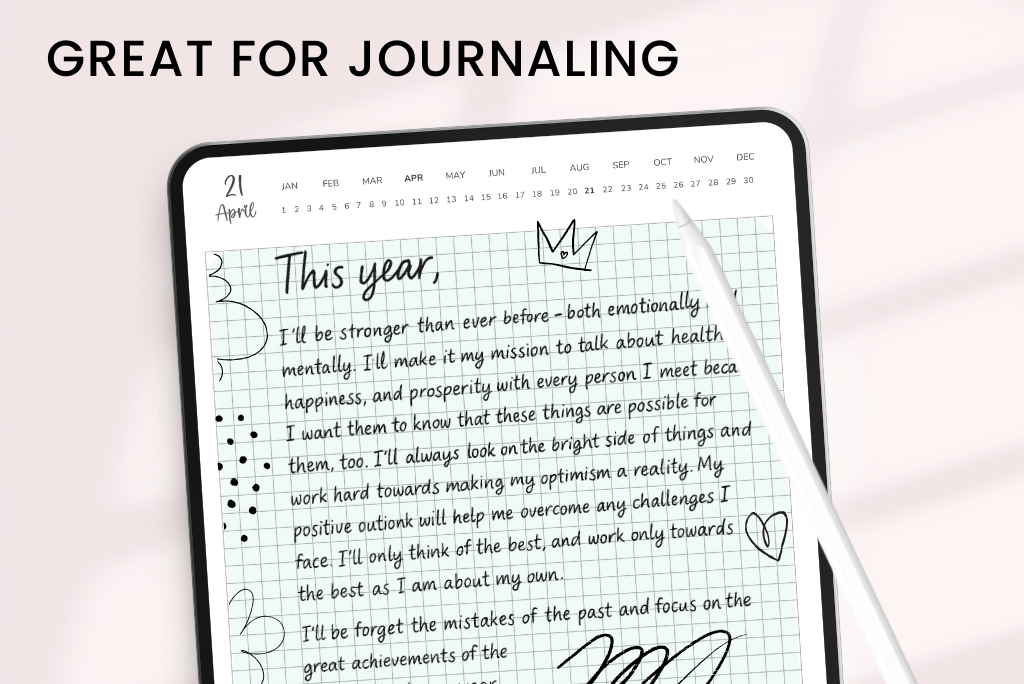 GREAT FOR JOURNALING
21
April
JAN FEB MAR APR MAY JUN JUL AUG SEP OCT NOV DEC
1 2 3 4 5 6 7 8 9 10 11 12 13 14 15 16 17 18 19 20 21 22 23 24 25 26 27 28 29 30
This year,
I'll be stronger than ever before - both emotionally
mentally. I'll make it my mission to talk about health
happiness, and prosperity with every person I meet beca
I want them to know that these things are possible for
them, too. I'll always look on the bright side of things and
work hard towards making my optimism a reality. My
positive outionk will help me overcome any challenges I
face. I'll only think of the best, and work only towards
the best as I am about my own.
I'll be forget the mistakes of the past and focus on the
great achievements of the